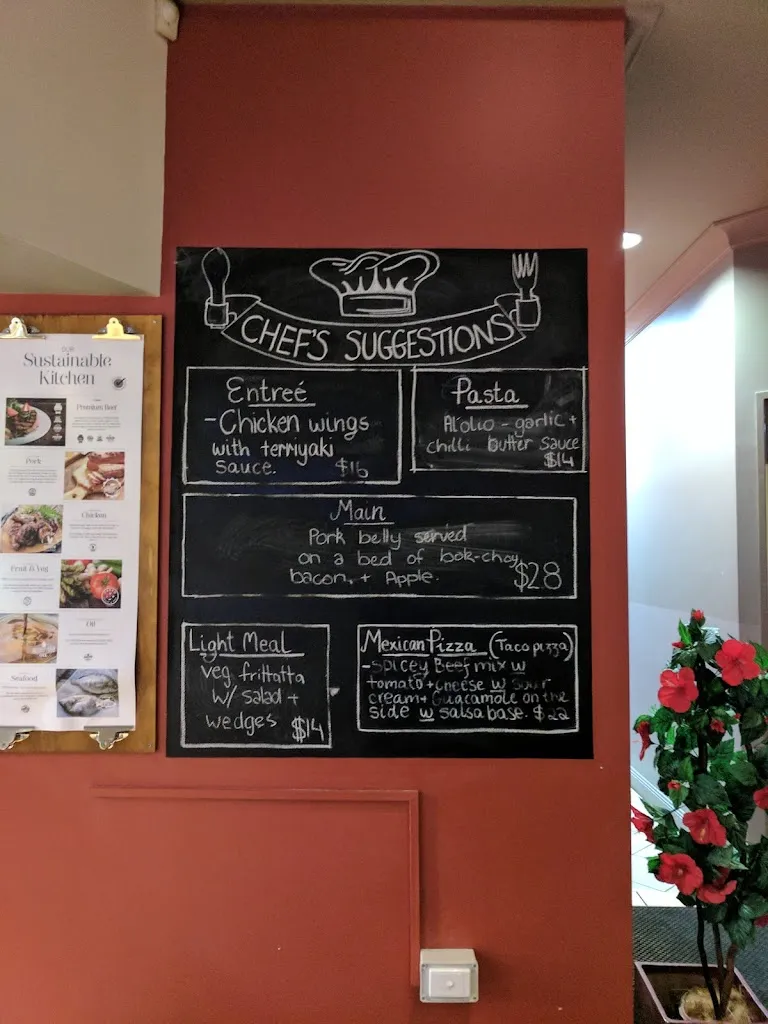 CHEF'S SUGGESTIONS
Entreé
-Chicken wings
with terriyaki
sauce. $16
Pasta
Al'olio - garlic +
chilli butter sauce
$14
Main
Pork belly served
on a bed of bok-choy
bacon, + Apple. $28
Light Meal
veg frittatta
w/ salad +
wedges $14
Mexican Pizza (Taco pizza)
-spicey Beef mix w
tomato + cheese w sour
cream + Guacamole on the
side w salsa base. $22
OUR
Sustainable
Kitchen
Premium Beef
Pork
Chicken
Fruit & Veg
Oil
Seafood